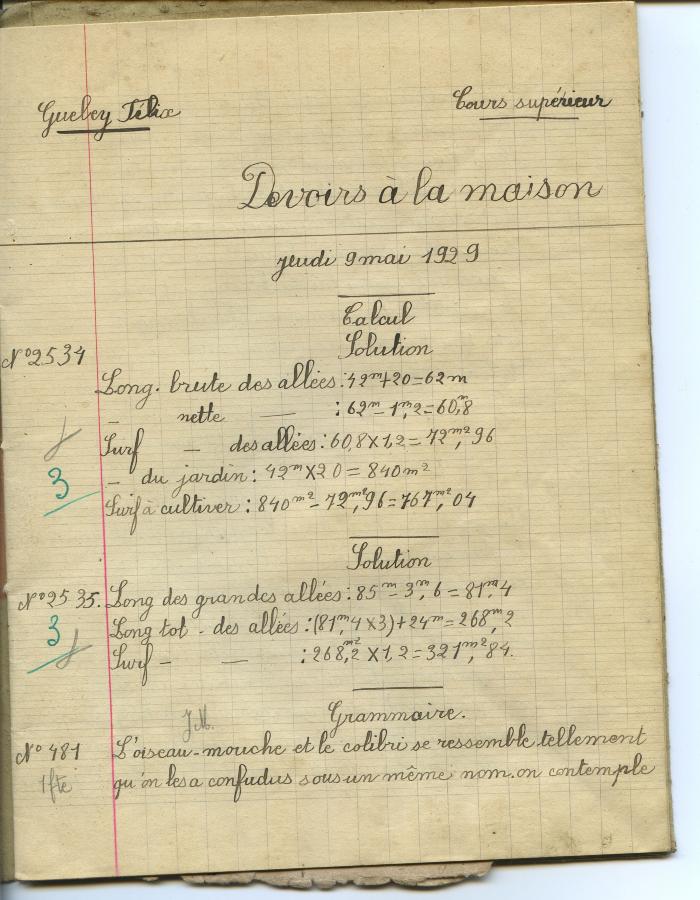 Guebey Félix
Cours supérieur
Devoirs à la maison
jeudi 9 mai 1929
Calcul
Solution
N°2534
Long. brute des allées : 42m+20=62m
_ nette — : 62m_1m,2=60,m8
Surf _ des allées : 60,8X1,2=72m2,96
3
_ du jardin : 42mX20=840m2
Surf à cultiver : 840m2_72m2,96=767m2,04
Solution
N°2535. Long des grandes allées : 85m_3m,6=81m,4
3
Long tot _ des allées : (81m,4X3)+24m=268m,2
Surf _ — : 268,m22X1,2=321m2,84.
J.M.
Grammaire.
N°481 L'oiseau-mouche et le colibri se ressemble tellement
1 fte qu'on les a confudus sous un même nom. on contemple